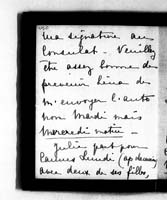 ma signature au
Consulat. Veuillez
être assez bonne de
prévenir Léna de
m'envoyer l'auto
non Mardi mais
Mercredi matin.
Julia part pour
Cannes Lundi (ap. demain)
avec deux de ses filles,